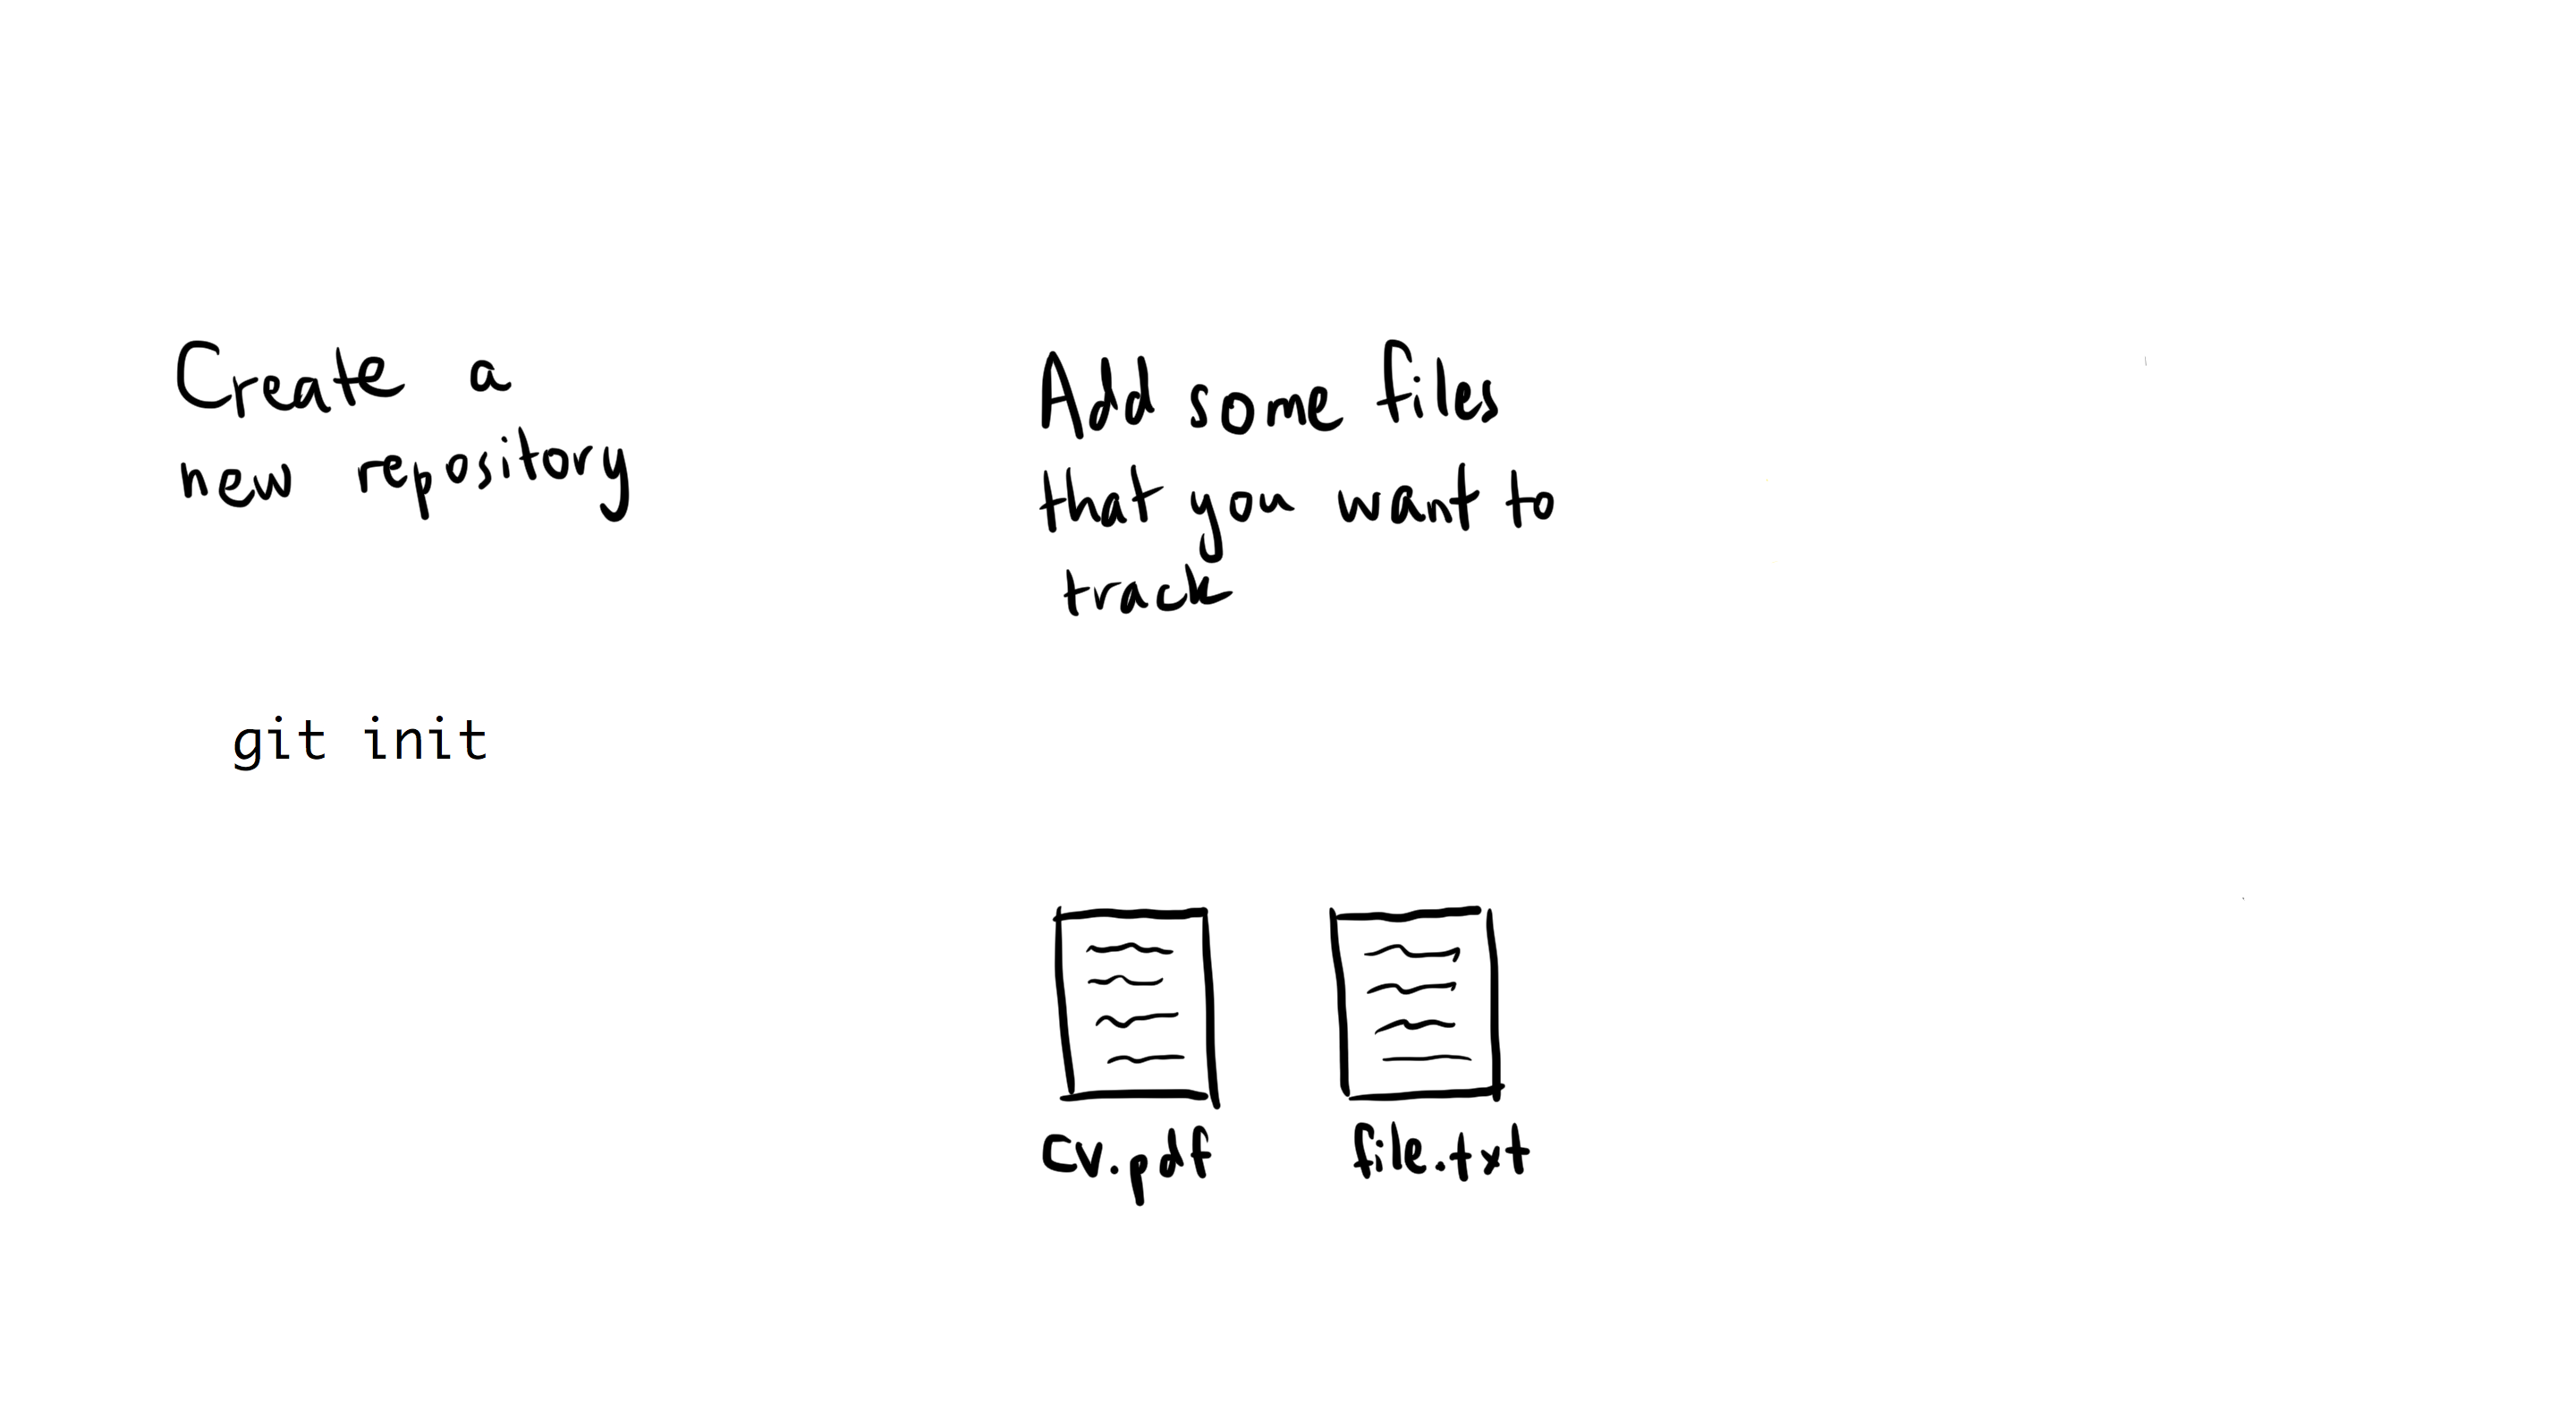 Create a
new repository
git init
Add some files
that you want to
track
cv.pdf
file.txt